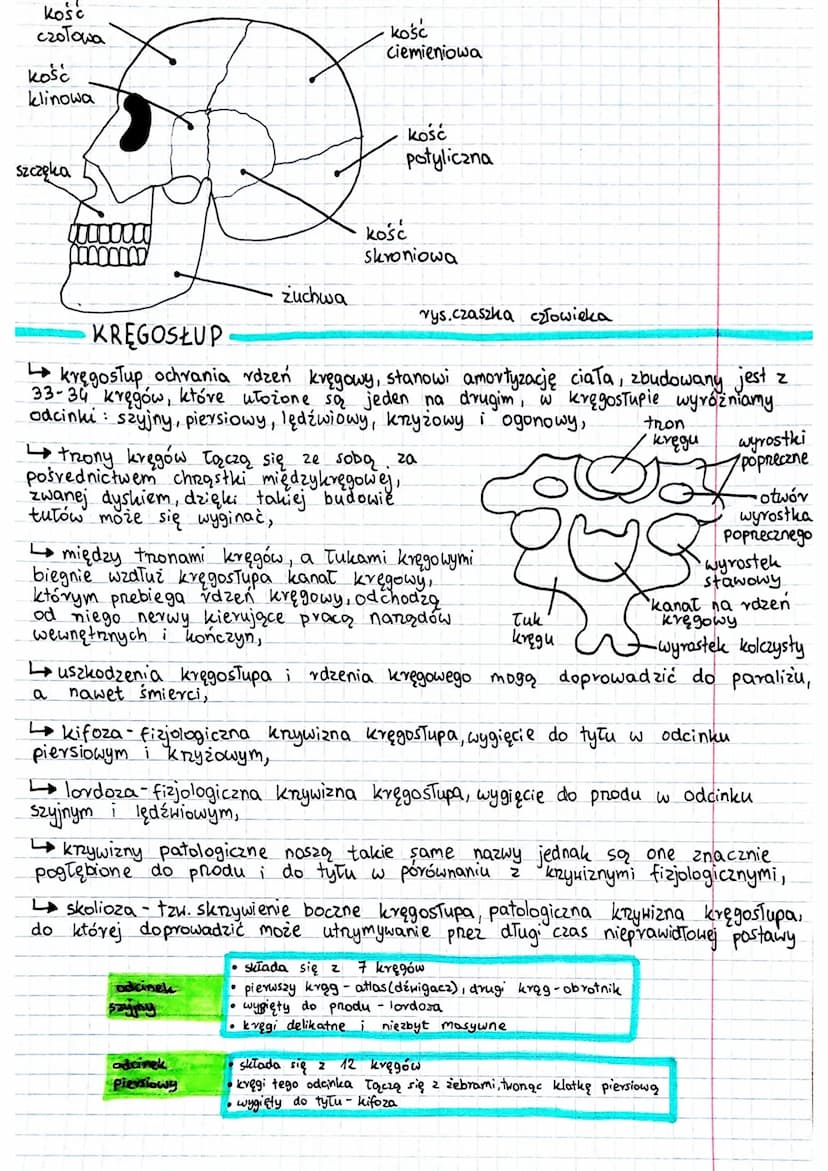 kość
czołowa
kość
ciemieniowa
kość
klinowa
kość
potyliczna
szczęka
kość
skroniowa
żuchwa
rys.czaszka człowieka
KRĘGOSŁUP
↳ kręgosłup ochrania rdzeń kręgowy, stanowi amortyzację ciała, zbudowany jest z
33-34 kręgów, które ułożone są jeden na drugim, w kręgosłupie wyróżniamy
odcinki: szyjny, piersiowy, lędźwiowy, krzyżowy i ogonowy,
↳ trzony kręgów łączą się ze sobą za
pośrednictwem chrząstki międzykręgowej,
zwanej dyskiem, dzięki takiej budowie
tułów może się wyginać,
↳ między trzonami kręgów, a łukami kręgowymi
biegnie wzdłuż kręgosłupa kanał kręgowy,
którym przebiega rdzeń kręgowy, odchodzą
od niego nerwy kierujące pracą narządów
wewnętrznych i kończyn,
trzon
kręgu
wyrostki
poprzeczne
otwór
wyrostka
poprzecznego
wyrostek
stawowy
kanał na rdzeń
kręgowy
wyrostek kolczysty
łuk
kręgu
↳ uszkodzenia kręgosłupa i rdzenia kręgowego mogą doprowadzić do paraliżu,
a nawet śmierci,
↳ kifoza - fizjologiczna krzywizna kręgosłupa, wygięcie do tyłu w odcinku
piersiowym i krzyżowym,
↳ lordoza - fizjologiczna krzywizna kręgosłupa, wygięcie do przodu w odcinku
szyjnym i lędźwiowym,
↳ krzywizny patologiczne noszą takie same nazwy jednak są one znacznie
pogłębione do przodu i do tyłu w porównaniu z krzywiznymi fizjologicznymi,
↳ skolioza - tzw. skrzywienie boczne kręgosłupa, patologiczna krzywizna kręgosłupa,
do której doprowadzić może utrzymywanie przez długi czas nieprawidłowej postawy
odcinek
szyjny
• składa się z 7 kręgów
• pierwszy kręg - atlas (dźwigacz), drugi kręg - obrotnik
• wygięty do przodu - lordoza
• kręgi delikatne i niezbyt masywne
odcinek
piersiowy
• składa się z 12 kręgów
• kręgi tego odcinka łączą się z żebrami, tworząc klatkę piersiową
• wygięty do tyłu - kifoza